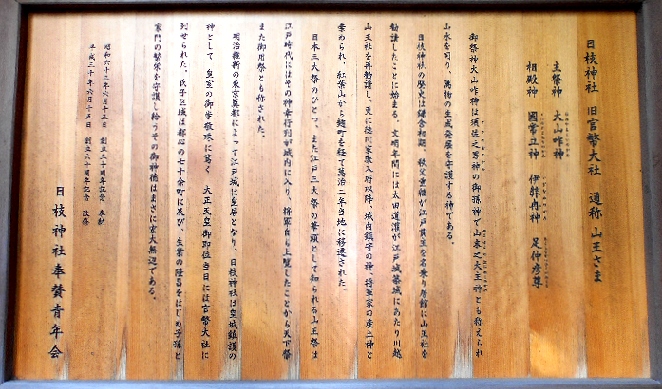 日枝神社 旧官幣大社 通称 山王さま
主祭神 大山咋神
相殿神 國常立神 伊弉冉神 足仲彦尊
御祭神大山咋神は須佐之男神の御孫神で山末之大主神とも称えられ
山水を司り、萬物の生成発展を守護する神である。
日枝神社の歴史は鎌倉初期、秩父重継が江戸貫主を名乗り居館に山王社を
勧請したことに始まる。文明年間には太田道灌が江戸城築城にあたり川越
山王社を再勧請し、更に徳川家康入府以降、城内鎮守の神、将軍家の産土神と
崇められ、紅葉山から麹町を経て萬治二年当地に移遷された。
日本三大祭のひとつ、また江戸三大祭の筆頭として知られる山王祭は
江戸時代にはその神幸行列が城内に入り、将軍自ら上覧したことから天下祭
また御用祭とも称された。
明治維新の東京奠都によって江戸城に皇居となり、日枝神社は皇城鎮護の
神として 皇室の御崇敬殊に篤く 大正天皇御即位当日には官幣大社に
列せられた。氏子区域は都心の七十余町に及び、生業の隆昌をはじめ子孫と
家門の繁栄を守護し給うその御神徳はまさに宏大無辺である。
昭和六十三年六月十五日 創立三十周年記念 奉献
平成三十年六月十五日 創立六十周年記念 改修
日枝神社奉賛青年会